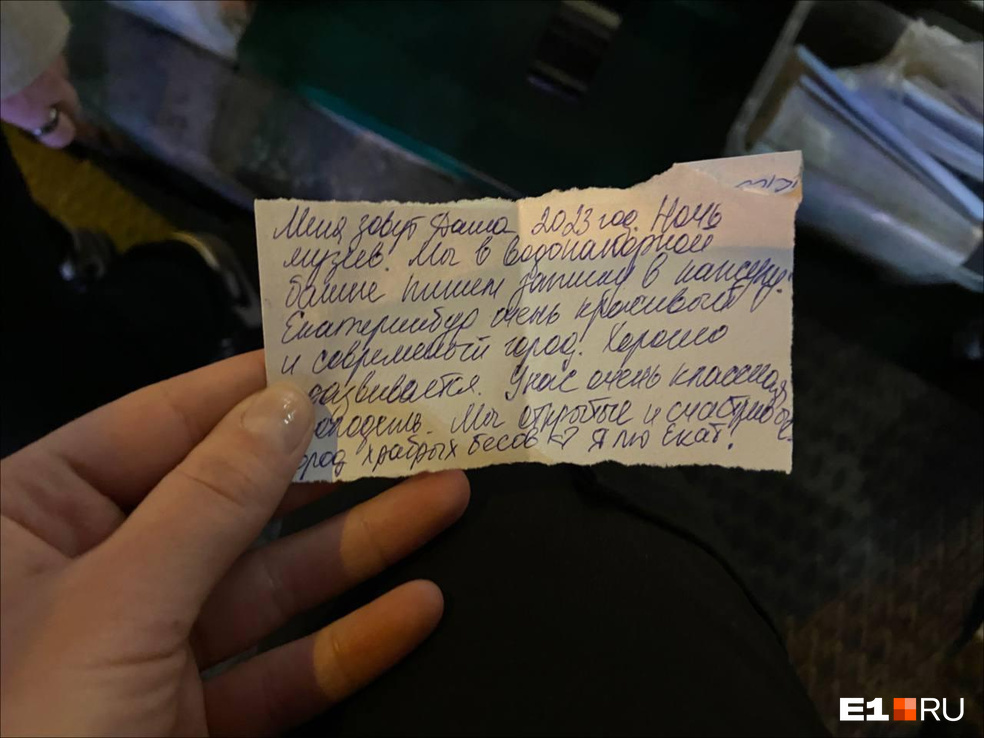 Меня зовут Даша 2023 год. Ночь
музеев. Мы в водонапорной
башне пишем записку в капсулу.
Екатеринбург очень красивый
и современный город. Хорошо
развивается. У нас очень классная
молодежь. Мы открытые и счастливые.
город храбрых бесов <3 Я лю Екат!
E1.RU